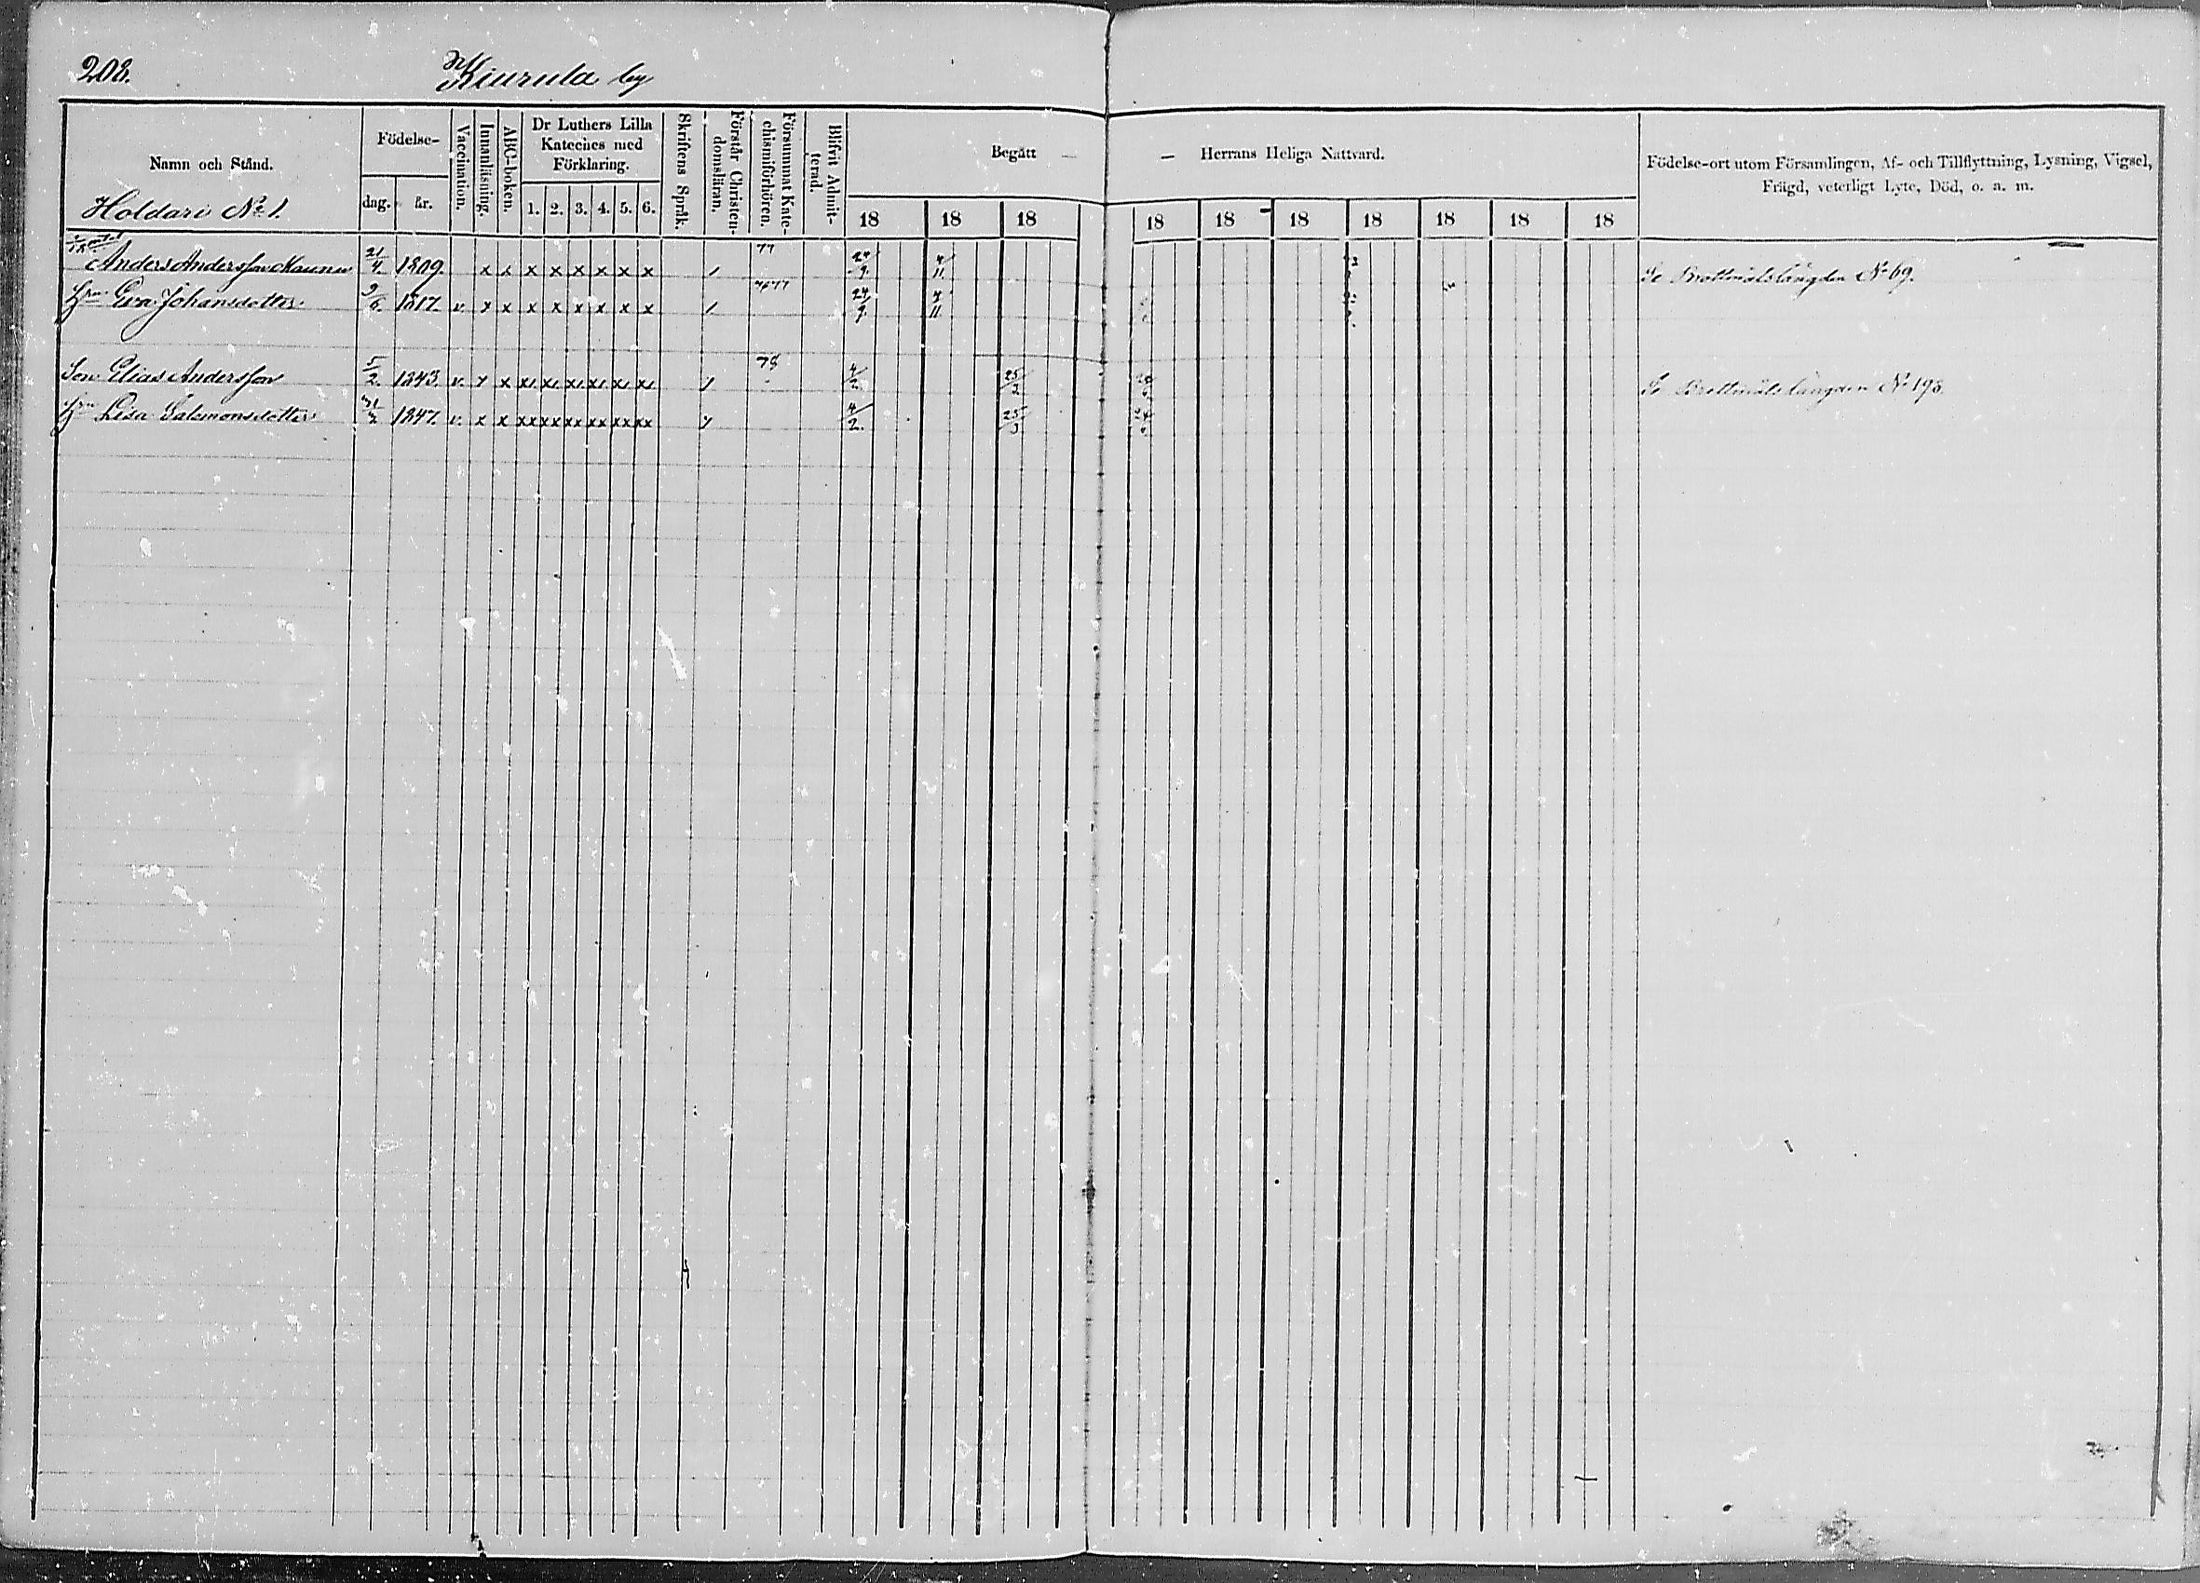 208. Kiurula by
Namn och Stånd. Födelse- dag. år. Vaccination. Innanläsning. ABC-boken. Dr Luthers Lilla Kateches med Förklaring. 1. 2. 3. 4. 5. 6. Skriftens Språk. Förstår Christendomsläran. Försummat Katechismiförhören. Blifvit Admitterad. Begått — — Herrans Heliga Nattvard. Födelse-ort utom Församlingen, Af- och Tillflyttning, Lysning, Vigsel, Frägd, veterligt Lyte, Död, o. a. m.
18 18 18 18 18 18 18 18 18 18
Holdari No 1.
Anders Andersson Kaunu 21/4. 1809. x x x x x x x x / 77 24/9. 4/11. Se Brottmålslängden No 69.
Hru Eva Johansdotter 9/6. 1817. v. x x x x x x x x / 7677 24/9. 4/11.
Son Elias Andersson 5/2. 1843. v. x x x x x x x x / 78 4/2. 25/3 Se Brottmålslängden No 198.
Hru Lisa Salomonsdotter 1847. v. x x xx xx xx xx xx xx / 4/2. 25/3